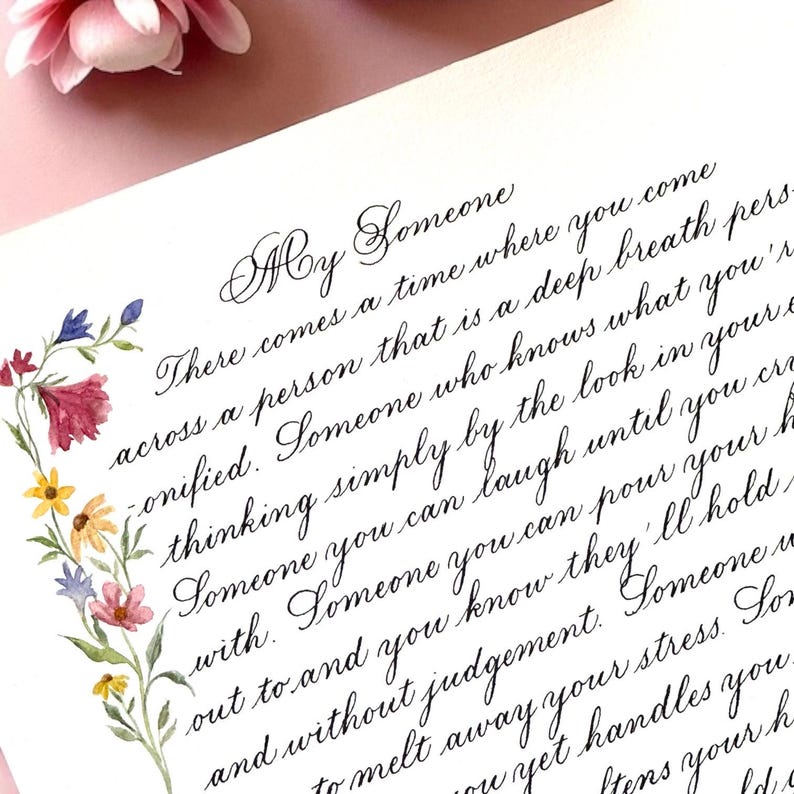 My Someone
There comes a time where you come
across a person that is a deep breath pers-
-onified. Someone who knows what you'r
thinking simply by the look in your e
Someone you can laugh until you cry
with. Someone you can pour your h
out to and you know they'll hold
and without judgement. Someone w
to melt away your stress. Som
you yet handles you
ftens your h
ld y